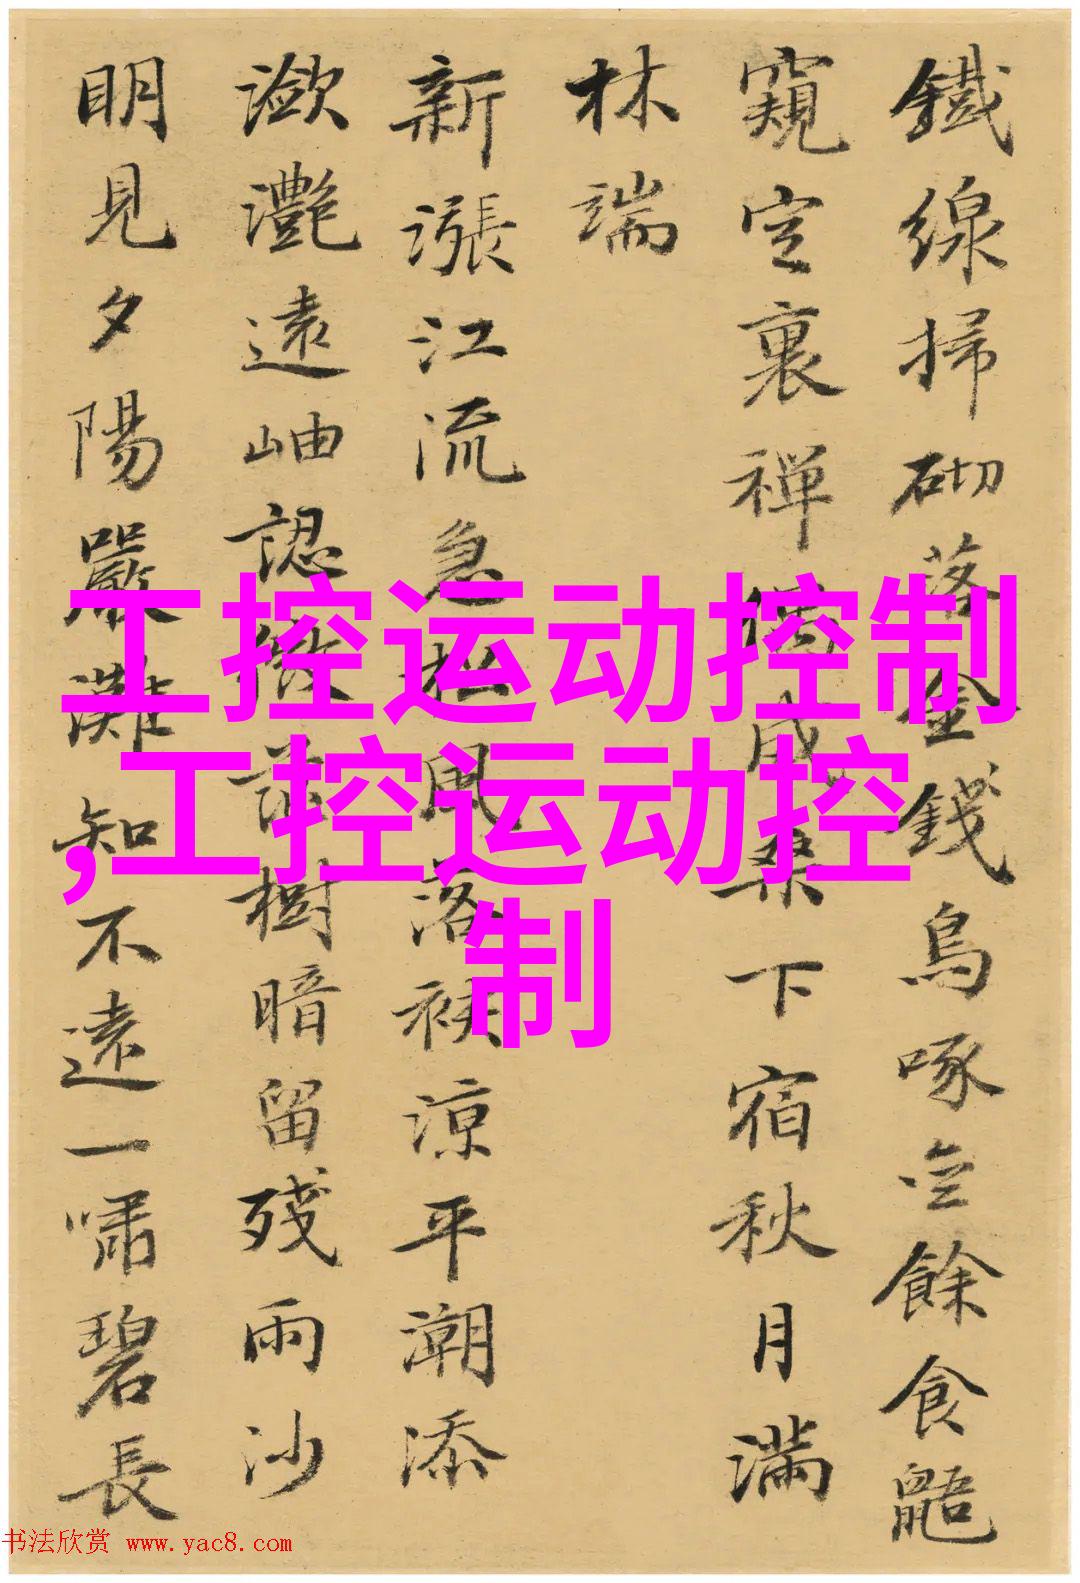 鐵線掃砌落金錢烏啄餘食鼯
窺定裏禪偈成桑下宿秋月滿
林端
新漲江流急松風落袂涼平潮添
瀲灧遠岫認微茫樹暗留殘雨沙
明見夕陽嚴灘知不遠一嘯碧長
工控运动控制
,工控运动控
制
书法欣赏 www.yac8.com